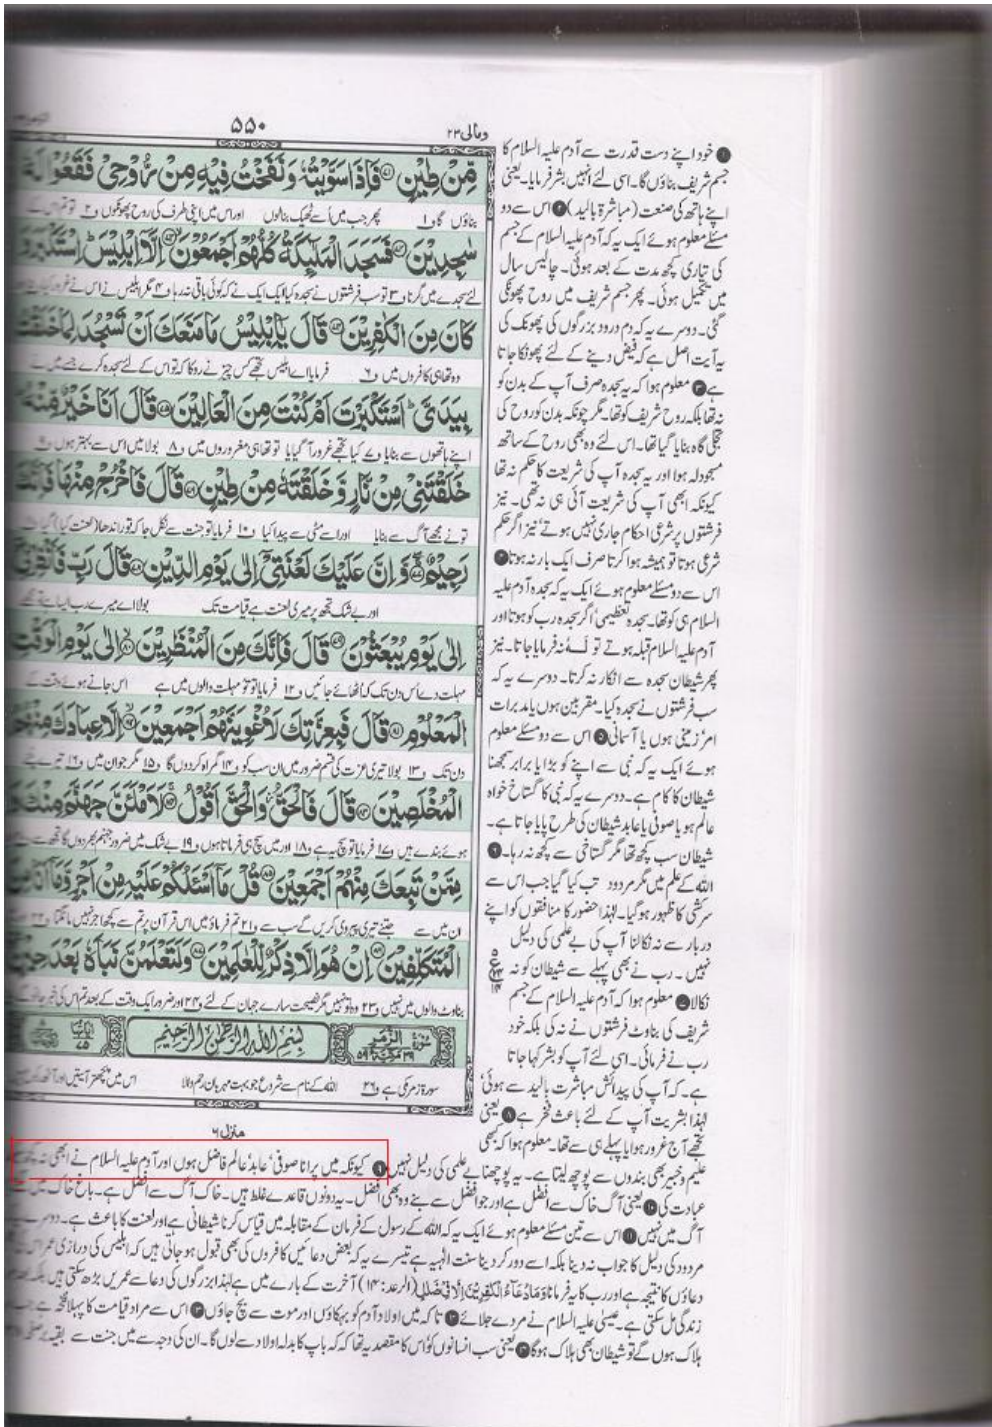 ۵۵۰
ومالی ۲۳
مِّنْ طِيْنٍ ﴿۷۱﴾ فَاِذَا سَوَّيْتُهٗ وَنَفَخْتُ فِيْهِ مِنْ رُّوْحِيْ فَقَعُوْا لَهٗ
بناؤں گا و۱ پھر جب میں اُسے ٹھیک بنالوں اور اس میں اپنی طرف کی روح پھونکوں و۲ تو تم اس کے
سٰجِدِيْنَ ﴿۷۲﴾ فَسَجَدَ الْمَلٰٓئِكَةُ كُلُّهُمْ اَجْمَعُوْنَ ﴿۷۳﴾ اِلَّاۤ اِبْلِيْسَ اِسْتَكْبَرَ وَ
لئے سجدے میں گرنا و۳ تو سب فرشتوں نے سجدہ کیا ایک ایک نے کہ کوئی باقی نہ رہا و۴ مگر ابلیس نے اس نے غرور کیا
كَانَ مِنَ الْكٰفِرِيْنَ ﴿۷۴﴾ قَالَ يٰۤاِبْلِيْسُ مَا مَنَعَكَ اَنْ تَسْجُدَ لِمَا خَلَقْتُ
وہ تھا ہی کافروں میں و۶ فرمایا اے ابلیس تجھے کس چیز نے روکا کہ تو اس کے لئے سجدہ کرے جسے میں نے
بِيَدَيَّ اَسْتَكْبَرْتَ اَمْ كُنْتَ مِنَ الْعَالِيْنَ ﴿۷۵﴾ قَالَ اَنَا خَيْرٌ مِّنْهُ
اپنے ہاتھوں سے بنایا و۷ کیا تجھے غرور آگیا یا تو تھا ہی مغروروں میں و۸ بولا میں اس سے بہتر ہوں و۹
خَلَقْتَنِيْ مِنْ نَّارٍ وَّخَلَقْتَهٗ مِنْ طِيْنٍ ﴿۷۶﴾ قَالَ فَاخْرُجْ مِنْهَا فَاِنَّكَ
تو نے مجھے آگ سے بنایا اور اسے مٹی سے پیدا کیا و۱۰ فرمایا تو جنت سے نکل جا کہ تو راندھا (لعنت کیا) گیا
رَجِيْمٌ ﴿۷۷﴾ وَّاِنَّ عَلَيْكَ لَعْنَتِيْۤ اِلٰى يَوْمِ الدِّيْنِ ﴿۷۸﴾ قَالَ رَبِّ فَاَنْظِرْنِيْۤ
اور بے شک تجھ پر میری لعنت ہے قیامت تک بولا اے میرے رب ایسا ہے تو مجھے
اِلٰى يَوْمِ يُبْعَثُوْنَ ﴿۷۹﴾ قَالَ فَاِنَّكَ مِنَ الْمُنْظَرِيْنَ ﴿۸۰﴾ اِلٰى يَوْمِ الْوَقْتِ
مہلت دے اُس دن تک کہ اُٹھائے جائیں و۱۲ فرمایا تو تو مہلت والوں میں ہے اس جانے ہوئے وقت کے
الْمَعْلُوْمِ ﴿۸۱﴾ قَالَ فَبِعِزَّتِكَ لَاُغْوِيَنَّهُمْ اَجْمَعِيْنَ ﴿۸۲﴾ اِلَّا عِبَادَكَ مِنْهُمُ
دن تک و۱۳ بولا تیری عزت کی قسم ضرور میں ان سب کو و۱۴ گمراہ کردوں گا و۱۵ مگر جو ان میں و۱۶ تیرے چنے
الْمُخْلَصِيْنَ ﴿۸۳﴾ قَالَ فَالْحَقُّ وَالْحَقَّ اَقُوْلُ ﴿۸۴﴾ لَاَمْلَئَنَّ جَهَنَّمَ مِنْكَ وَ
ہوئے بندے ہیں و۱۷ فرمایا تو سچ یہ ہے و۱۸ اور میں سچ ہی فرماتا ہوں و۱۹ بے شک میں ضرور جہنم بھردوں گا تجھ سے
مِمَّنْ تَبِعَكَ مِنْهُمْ اَجْمَعِيْنَ ﴿۸۵﴾ قُلْ مَاۤ اَسْئَلُكُمْ عَلَيْهِ مِنْ اَجْرٍ وَّمَاۤ اَنَا مِنَ
ان میں سے جتنے تیری پیروی کریں گے سب سے و۲۱ تم فرماؤ میں اس قرآن پر تم سے کچھ اجر نہیں مانگتا و۲۲
الْمُتَكَلِّفِيْنَ ﴿۸۶﴾ اِنْ هُوَ اِلَّا ذِكْرٌ لِّلْعٰلَمِيْنَ ﴿۸۷﴾ وَلَتَعْلَمُنَّ نَبَاَهٗ بَعْدَ حِيْنٍ
بناوٹ والوں میں نہیں و۲۳ وہ تو نہیں مگر نصیحت سارے جہان کے لئے و۲۴ اور ضرور ایک وقت کے بعد تم اس کی خبر جانو گے
سُوْرَةُ الزُّمَرِ ۳۹ مَكِّيَّةٌ ۵۹ بِسْمِ اللّٰهِ الرَّحْمٰنِ الرَّحِيْمِ اٰيَاتُهَا ۷۵
سورۃ زمر مکی ہے و۲۶ اللہ کے نام سے شروع جو بہت مہربان رحم والا اس میں پچھتر آیتیں اور آٹھ
منزل ۶
۱ خود اپنے دست قدرت سے آدم علیہ السلام کا
جسم شریف بناؤں گا۔ اسی لئے انہیں بشر فرمایا۔ یعنی
اپنے ہاتھ کی صنعت (مباشرۃ بالید) ۲ اس سے دو
مسئلے معلوم ہوئے ایک یہ کہ آدم علیہ السلام کے جسم
کی تیاری کچھ مدت کے بعد ہوئی۔ چالیس سال
میں تکمیل ہوئی۔ پھر جسم شریف میں روح پھونکی
گئی۔ دوسرے یہ کہ دم درود بزرگوں کی پھونک کی
یہ آیت اصل ہے کہ فیض دینے کے لئے پھونکا جاتا
ہے ۳ معلوم ہوا کہ یہ سجدہ صرف آپ کے بدن کو
نہ تھا بلکہ روح شریف کو تھا۔ مگر چونکہ بدن کو روح کی
تجلی گاہ بنایا گیا تھا۔ اس لئے وہ بھی روح کے ساتھ
مسجود لہ ہوا اور یہ سجدہ آپ کی شریعت کا حکم نہ تھا
کیونکہ ابھی آپ کی شریعت آئی ہی نہ تھی۔ نیز
فرشتوں پر شرعی احکام جاری نہیں ہوتے نیز اگر حکم
شرعی ہوتا تو ہمیشہ ہوا کرتا صرف ایک بار نہ ہوتا ۴
اس سے دو مسئلے معلوم ہوئے ایک یہ کہ سجدہ آدم علیہ
السلام ہی کو تھا۔ سجدہ تعظیمی، اگر سجدہ رب کو ہوتا اور
آدم علیہ السلام قبلہ ہوتے تو لَهٗ نہ فرمایا جاتا۔ نیز
پھر شیطان سجدہ سے انکار نہ کرتا۔ دوسرے یہ کہ
سب فرشتوں نے سجدہ کیا۔ مقربین ہوں یا مدبرات
امر زمینی ہوں یا آسمانی ۵ اس سے دو مسئلے معلوم
ہوئے ایک یہ کہ نبی سے اپنے کو بڑا یا برابر سمجھنا
شیطان کا کام ہے۔ دوسرے یہ کہ نبی کا گستاخ خواہ
عالم ہو یا صوفی یا عابد شیطان کی طرح پایا جاتا ہے۔
شیطان سب کچھ تھا مگر گستاخی سے کچھ نہ رہا۔ ۶
اللہ کے علم میں مگر مردود تب کیا گیا جب اس سے
سرکشی کا ظہور ہوگیا۔ لہٰذا حضور کا منافقوں کو اپنے
دربار سے نہ نکالنا آپ کی بے علمی کی دلیل
نہیں۔ رب نے بھی پہلے سے شیطان کو نہ
نکالا ۷ معلوم ہوا کہ آدم علیہ السلام کے جسم
شریف کی بناوٹ فرشتوں نے نہ کی بلکہ خود
رب نے فرمائی۔ اسی لئے آپ کو بشر کہا جاتا
ہے۔ کہ آپ کی پیدائش مباشرت بالید سے ہوئی،
لہٰذا بشریت آپ کے لئے باعث فخر ہے ۸ یعنی
تجھے آج غرور ہوا یا پہلے ہی سے تھا۔ معلوم ہوا کہ کبھی
علیم و خبیر بھی بندوں سے پوچھ لیتا ہے۔ یہ پوچھنا بے علمی کی دلیل نہیں ۹ کیونکہ میں پرانا صوفی، عابد، عالم فاضل ہوں اور آدم علیہ السلام نے ابھی نہ کچھ
عبادت کی ۱۰ یعنی آگ خاک سے افضل ہے اور جو افضل سے بنے وہ بھی افضل۔ یہ دونوں قاعدے غلط ہیں۔ خاک آگ سے افضل ہے۔ باغ خاک میں
آگ میں نہیں ۱۱ اس سے تین مسئلے معلوم ہوئے ایک یہ کہ اللہ کے رسول کے فرمان کے مقابلہ میں قیاس کرنا شیطانی ہے اور لعنت کا باعث ہے۔ دوسرے
مردود کی دلیل کا جواب نہ دینا بلکہ اسے دور کر دینا سنت الٰہیہ ہے تیسرے یہ کہ بعض دعائیں کافروں کی بھی قبول ہو جاتی ہیں کہ ابلیس کی درازی عمر اس کی
دعاؤں کا نتیجہ ہے اور رب کا یہ فرمانا وَمَا دُعَآءُ الْكٰفِرِيْنَ اِلَّا فِيْ ضَلٰلٍ (الرعد: ۱۴) آخرت کے بارے میں ہے لہٰذا بزرگوں کی دعا سے عمریں بڑھ سکتی ہیں بلکہ
زندگی مل سکتی ہے۔ عیسیٰ علیہ السلام نے مردے جلائے ۱۲ تاکہ میں اولاد آدم کو بہکاؤں اور موت سے بچ جاؤں ۱۳ اس سے مراد قیامت کا پہلا نفخہ ہے جب
ہلاک ہوں گے تو شیطان بھی ہلاک ہوگا ۱۴ یعنی سب انسانوں کو اس کا مقصد یہ تھا کہ کہ باپ کا بدلہ اولاد سے لوں گا۔ ان کی وجہ سے میں جنت سے بقیہ بر صفحہ